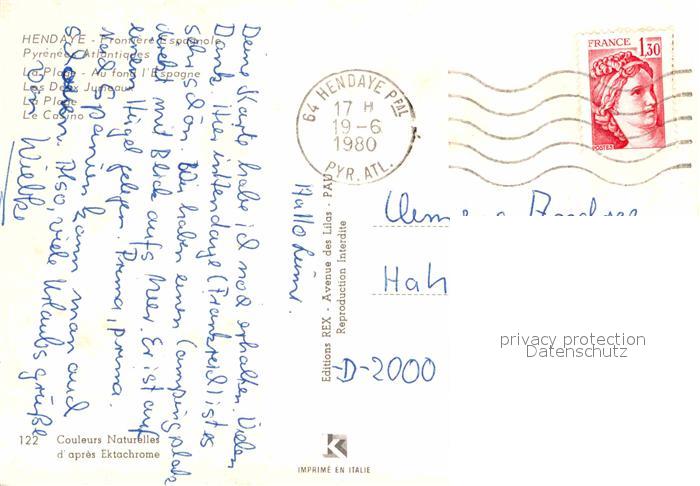 HENDAYE - Frontière Espagnole
Pyrénées Atlantiques
La Plage - Au fond l'Espagne
Les Deux Jumeaux
La Plage
Le Casino
Hallo
Deine Karte habe ich noch erhalten. Vielen
Dank. Hier in Hendaye (Frankreich) ist es
schön. Wir haben einen Campingplatz
direkt mit Blick aufs Meer. Er ist auf
einem Hügel gelegen. Prima, prima.
Nach Spanien kann man auch
schauen. Also, viele Urlaubsgrüße
von Wiebke
122 Couleurs Naturelles
d'après Ektachrome
Editions REX - Avenue des Lilas - PAU
Reproduction Interdite
IMPRIMÉ EN ITALIE
64 HENDAYE PPAL
17 H
19-6
1980
PYR. ATL.
FRANCE 1,30
POSTES
Hah
D-2000
privacy protection
Datenschutz